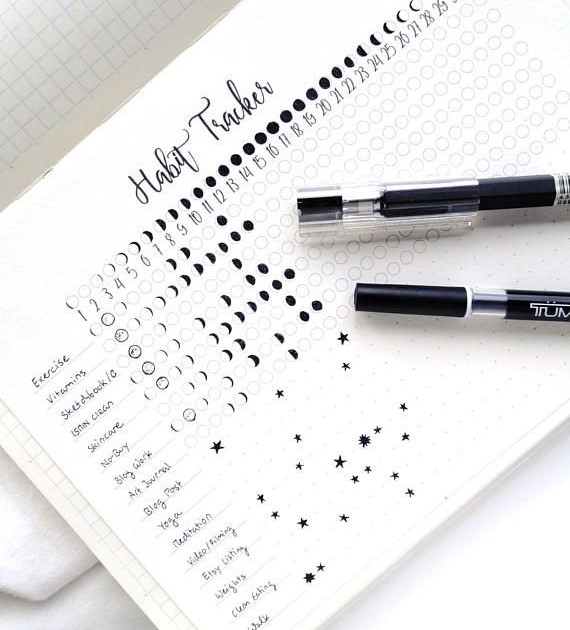 Habit Tracker
1 2 3 4 5 6 7 8 9 10 11 12 13 14 15 16 17 18 19 20 21 22 23 24 25 26 27 28 29
Exercise
Vitamins
Sketchbook/C
15min clean
Skincare
No-Buy
Blog Work
Art Journal
Blog Post
Yoga
Meditation
Video/Filming
Etsy Listing
Weights
Clean Eating
Walk
TÜM